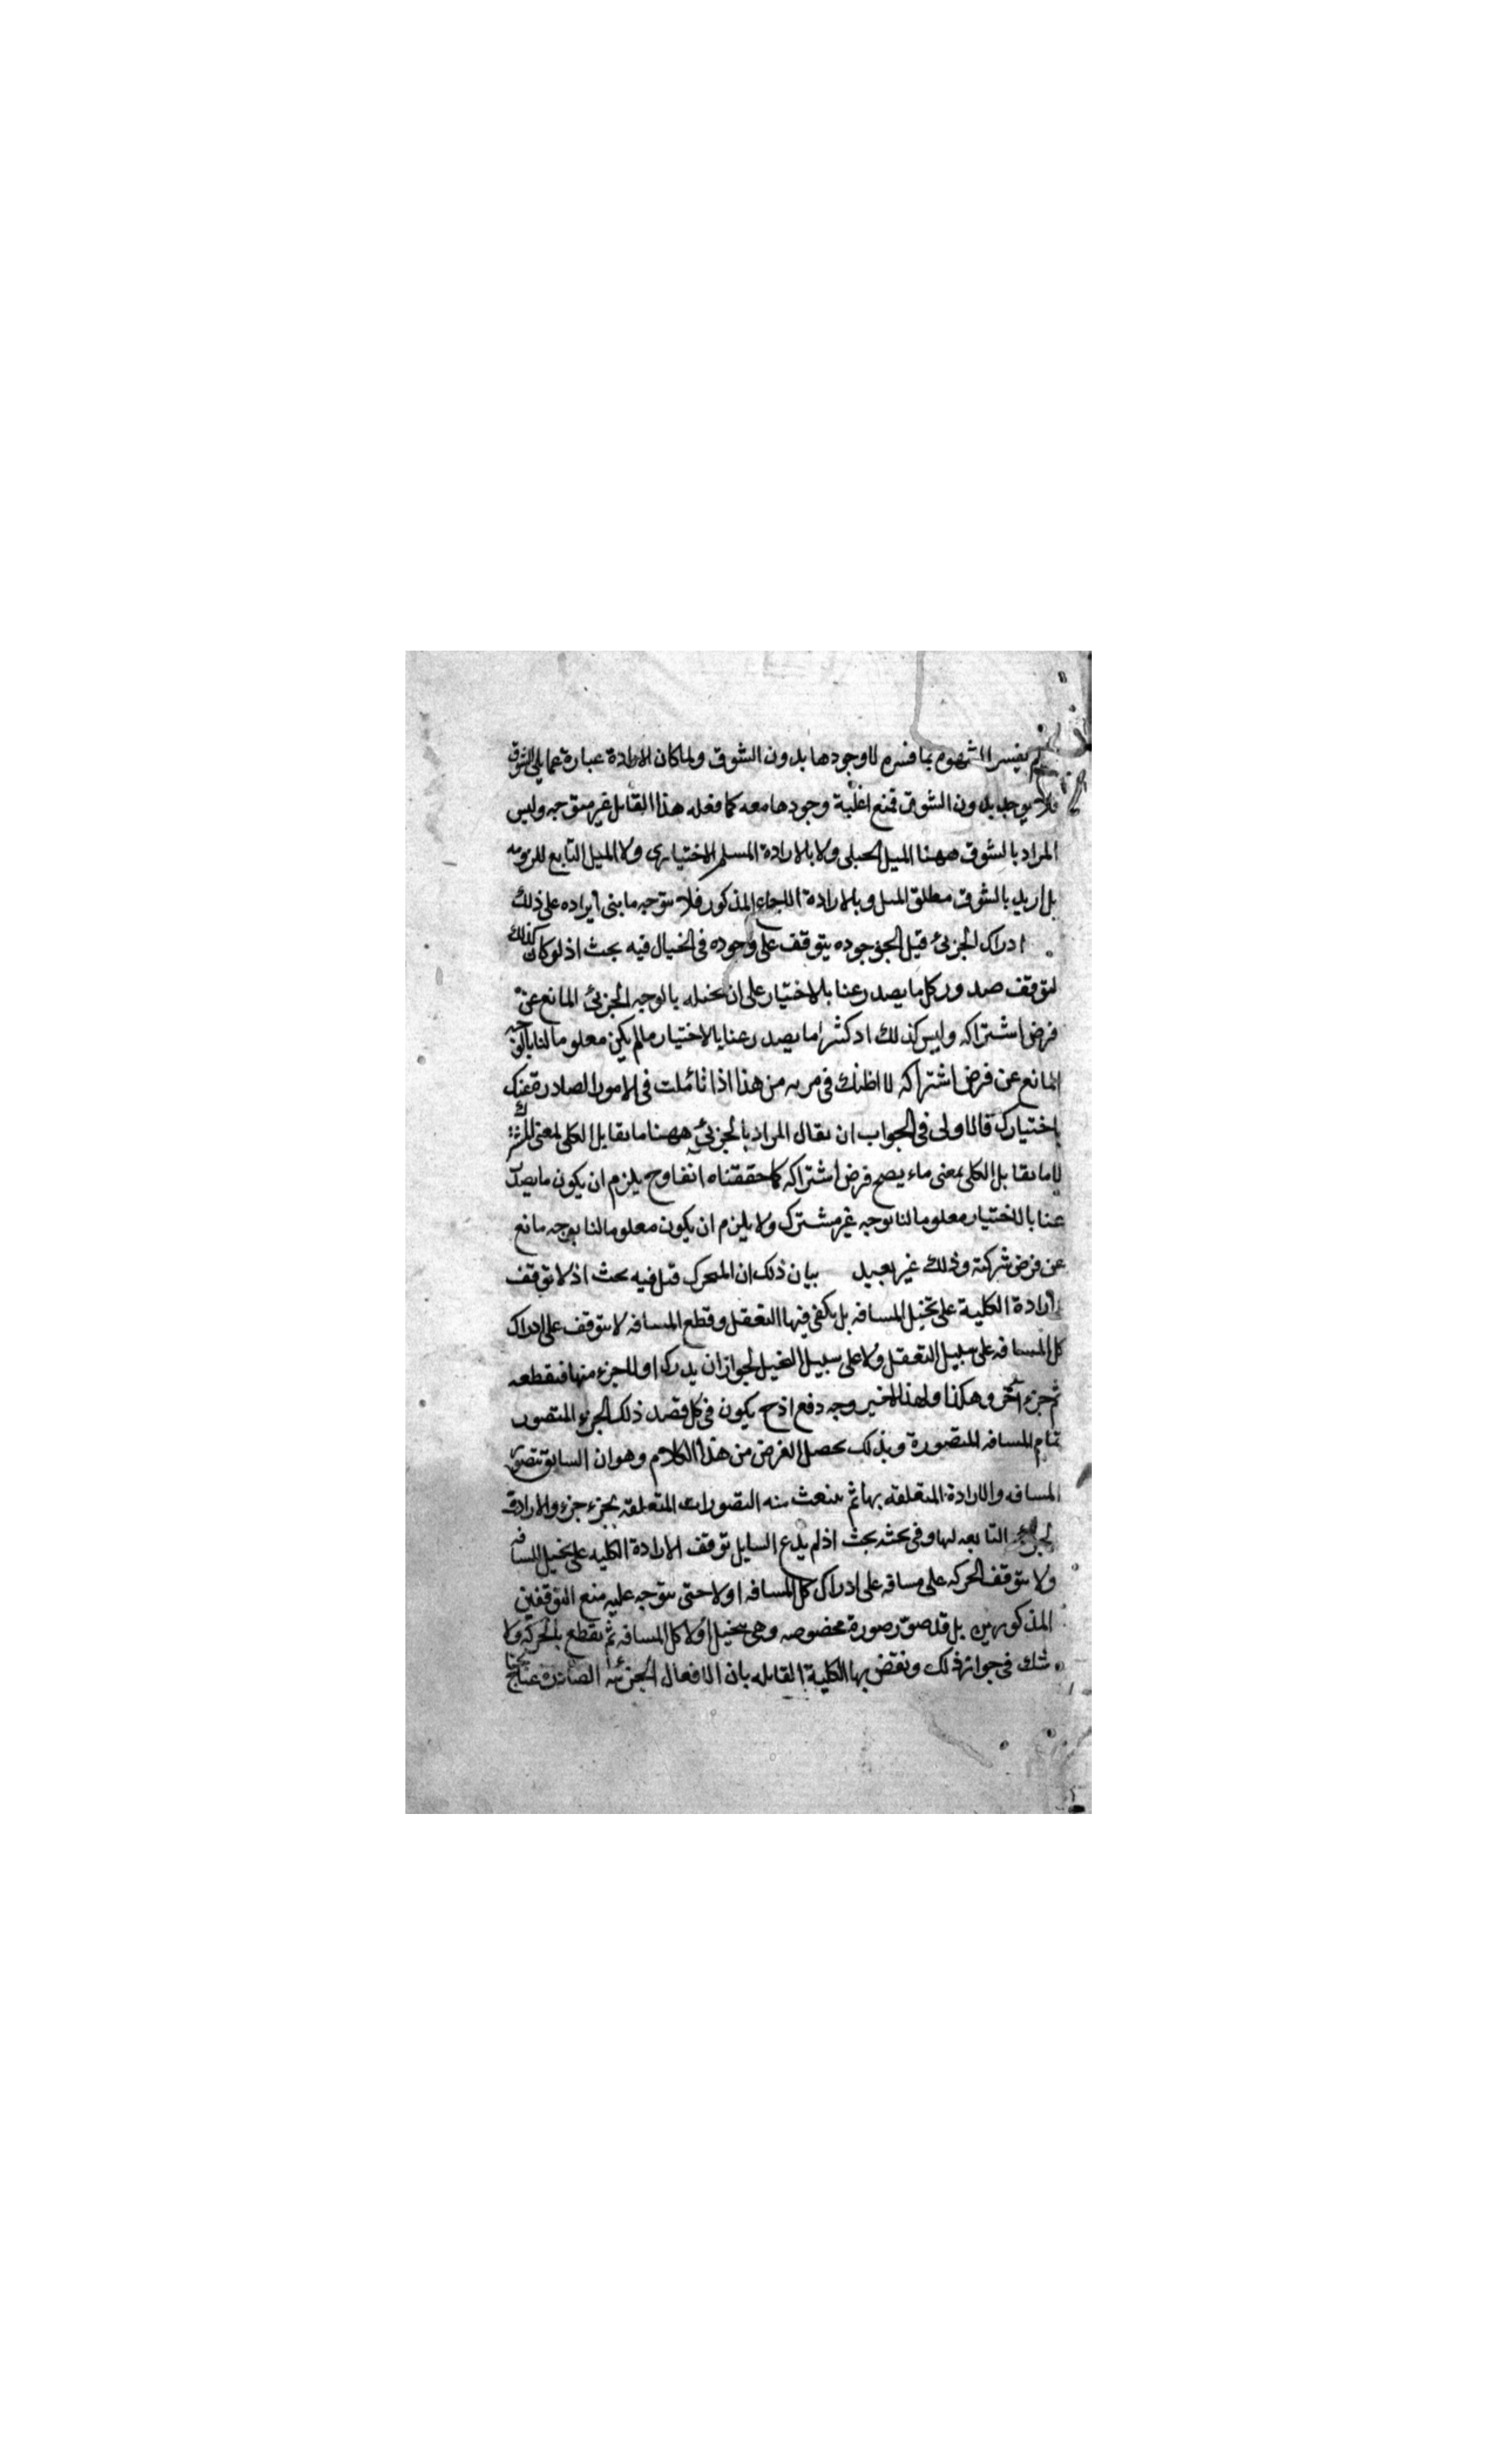 لم يفسر المشهور بما فسره لا وجودها بدون الشوق ولما كان الارادة عبارة عما يلى الشوق
فلا يوجد بدون الشوق فمنع اغلبية وجودها معه كما فعله هذا القايل غير متوجه وليس
المراد بالشوق ههنا الميل الجبلى ولا بالارادة الميل الاختيارى ولا الميل التابع
بل اريد بالشوق مطلق الميل وبالارادة الاجماع المذكور فلا يتوجه ما بنى ايراده على ذلك
ادراك الجزئى قبل وجوده يتوقف على وجوده فى الخيال فيه بحث اذ لو كان كذلك
لتوقف صدور كل ما يصدر عنا بالاختيار على ان نتخيله بالوجه الجزئى المانع عن
فرض اشتراكه وليس كذلك اذ كثيرا ما يصدر عنا بالاختيار ما لم يكن معلوما لنا بالوجه
المانع عن فرض اشتراكه لا اظنك فى مرية من هذا اذا تأملت فى الامور الصادرة عنك
باختيارك فالاولى فى الجواب ان يقال المراد بالجزئى ههنا ما يقابل الكلى بمعنى المشترك
لا ما يقابل الكلى بمعنى ما يصح فرض اشتراكه كما حققناه انفا وح يلزم ان يكون ما يصدر
عنا بالاختيار معلوما لنا بوجه غير مشترك ولا يلزم ان يكون معلوما لنا بوجه مانع
عن فرض شركته وذلك غير بعيد بيان ذلك ان المتحرك قيل فيه بحث اذ لا يتوقف
الارادة الكلية على تخيل المسافه بل يكفى فيها التعقل وقطع المسافه لا يتوقف على ادراك
كل المسافه على سبيل التعقل ولا على سبيل التخيل لجواز ان يدرك اولا جزء منها فيقطعه
ثم جزء آخر وهكذا ولهذا الاخير وجه دفع اذ ح يكون فى كل قصد ذلك الجزء المتصور
تمام المسافه المتصورة وبذلك يحصل الغرض من هذا الكلام وهو ان السابق تصور
المسافه والارادة المتعلقه بها ثم ينبعث منه التصورات المتعلقه بجزء جزء والارادة
الجزئيه التابعه لها وفى بحثه بحث اذ لم يدع السايل توقف الارادة الكليه على تخيل المسافه
ولا يتوقف الحركه على مسافه على ادراك كل المسافه اولا حتى يتوجه عليه منع التوقفين
المذكورين بل قد صور صورة مخصوصه وهى تخيل اولا كل المسافه ثم يقطع بالحركه ولا
شك فى جواز ذلك ونقض بها الكلية القايله بان الافعال الجزئيه الصادرة عنا